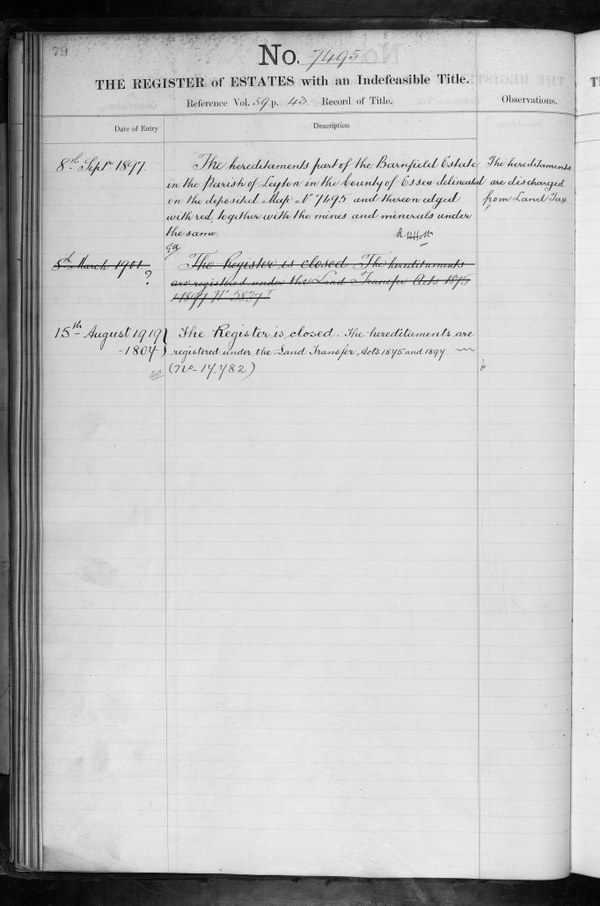 79
No. 7495
THE REGISTER of ESTATES with an Indefeasible Title.
Reference Vol. 59 p. 43 Record of Title.
Observations.
Date of Entry
Description
8th Septr 1897
The hereditaments part of the Barnfield Estate
in the Parish of Leyton in the County of Essex delineated
on the deposited Map No 7495 and thereon edged
with red, together with the mines and minerals under
the same.
The hereditaments
are discharged
from Land Tax
8th March 1901
?
The Register is closed The hereditaments
are registered under the Land Transfer Acts 1875
15th August 1919
-1804
The Register is closed. The hereditaments are
registered under the Land Transfer Acts 1875 and 1897
(No. 17,782)